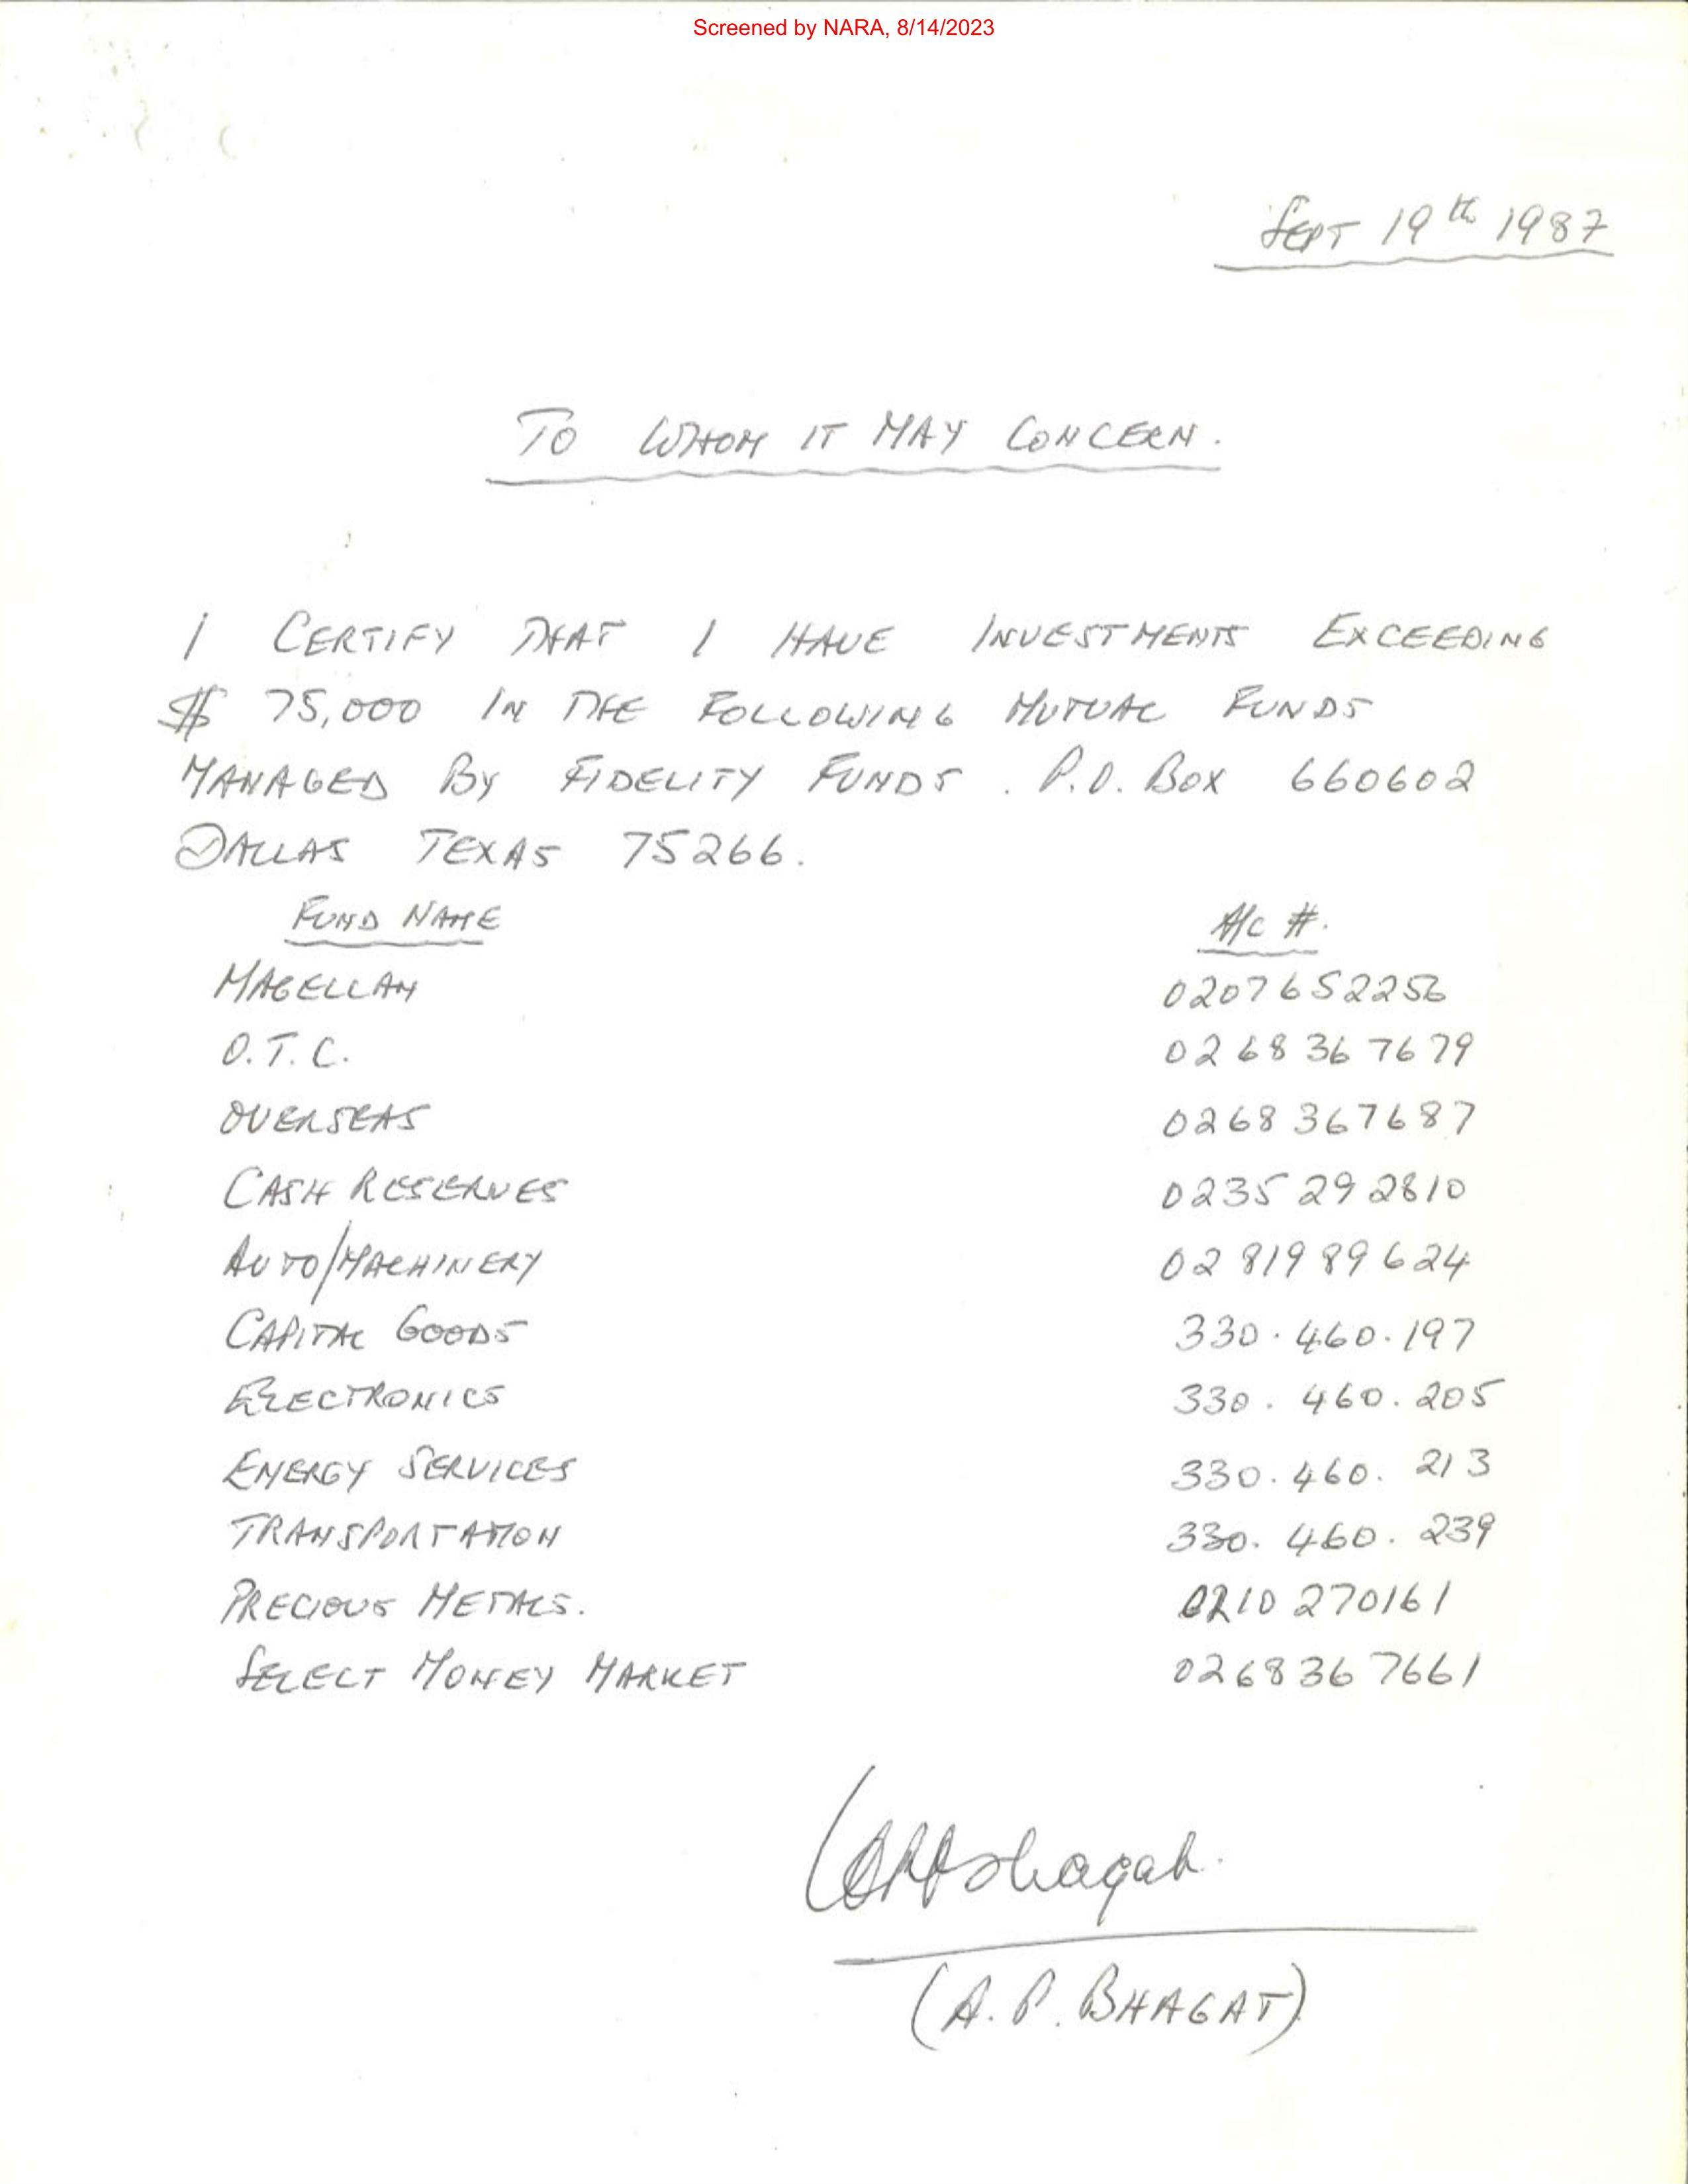 Screened by NARA, 8/14/2023
SEPT 19th 1987
TO WHOM IT MAY CONCERN.
I CERTIFY THAT I HAVE INVESTMENTS EXCEEDING
$ 75,000 IN THE FOLLOWING MUTUAL FUNDS
MANAGED BY FIDELITY FUNDS. P.O. BOX 660602
DALLAS TEXAS 75266.
FUND NAME A/C #.
MAGELLAN 0207652256
O.T.C. 0268367679
OVERSEAS 0268367687
CASH RESERVES 0235292810
AUTO/MACHINERY 0281989624
CAPITAL GOODS 330.460.197
ELECTRONICS 330.460.205
ENERGY SERVICES 330.460.213
TRANSPORTATION 330.460.239
PRECIOUS METALS. 0210270161
SELECT MONEY MARKET 0268367661
(A.P. BHAGAT)